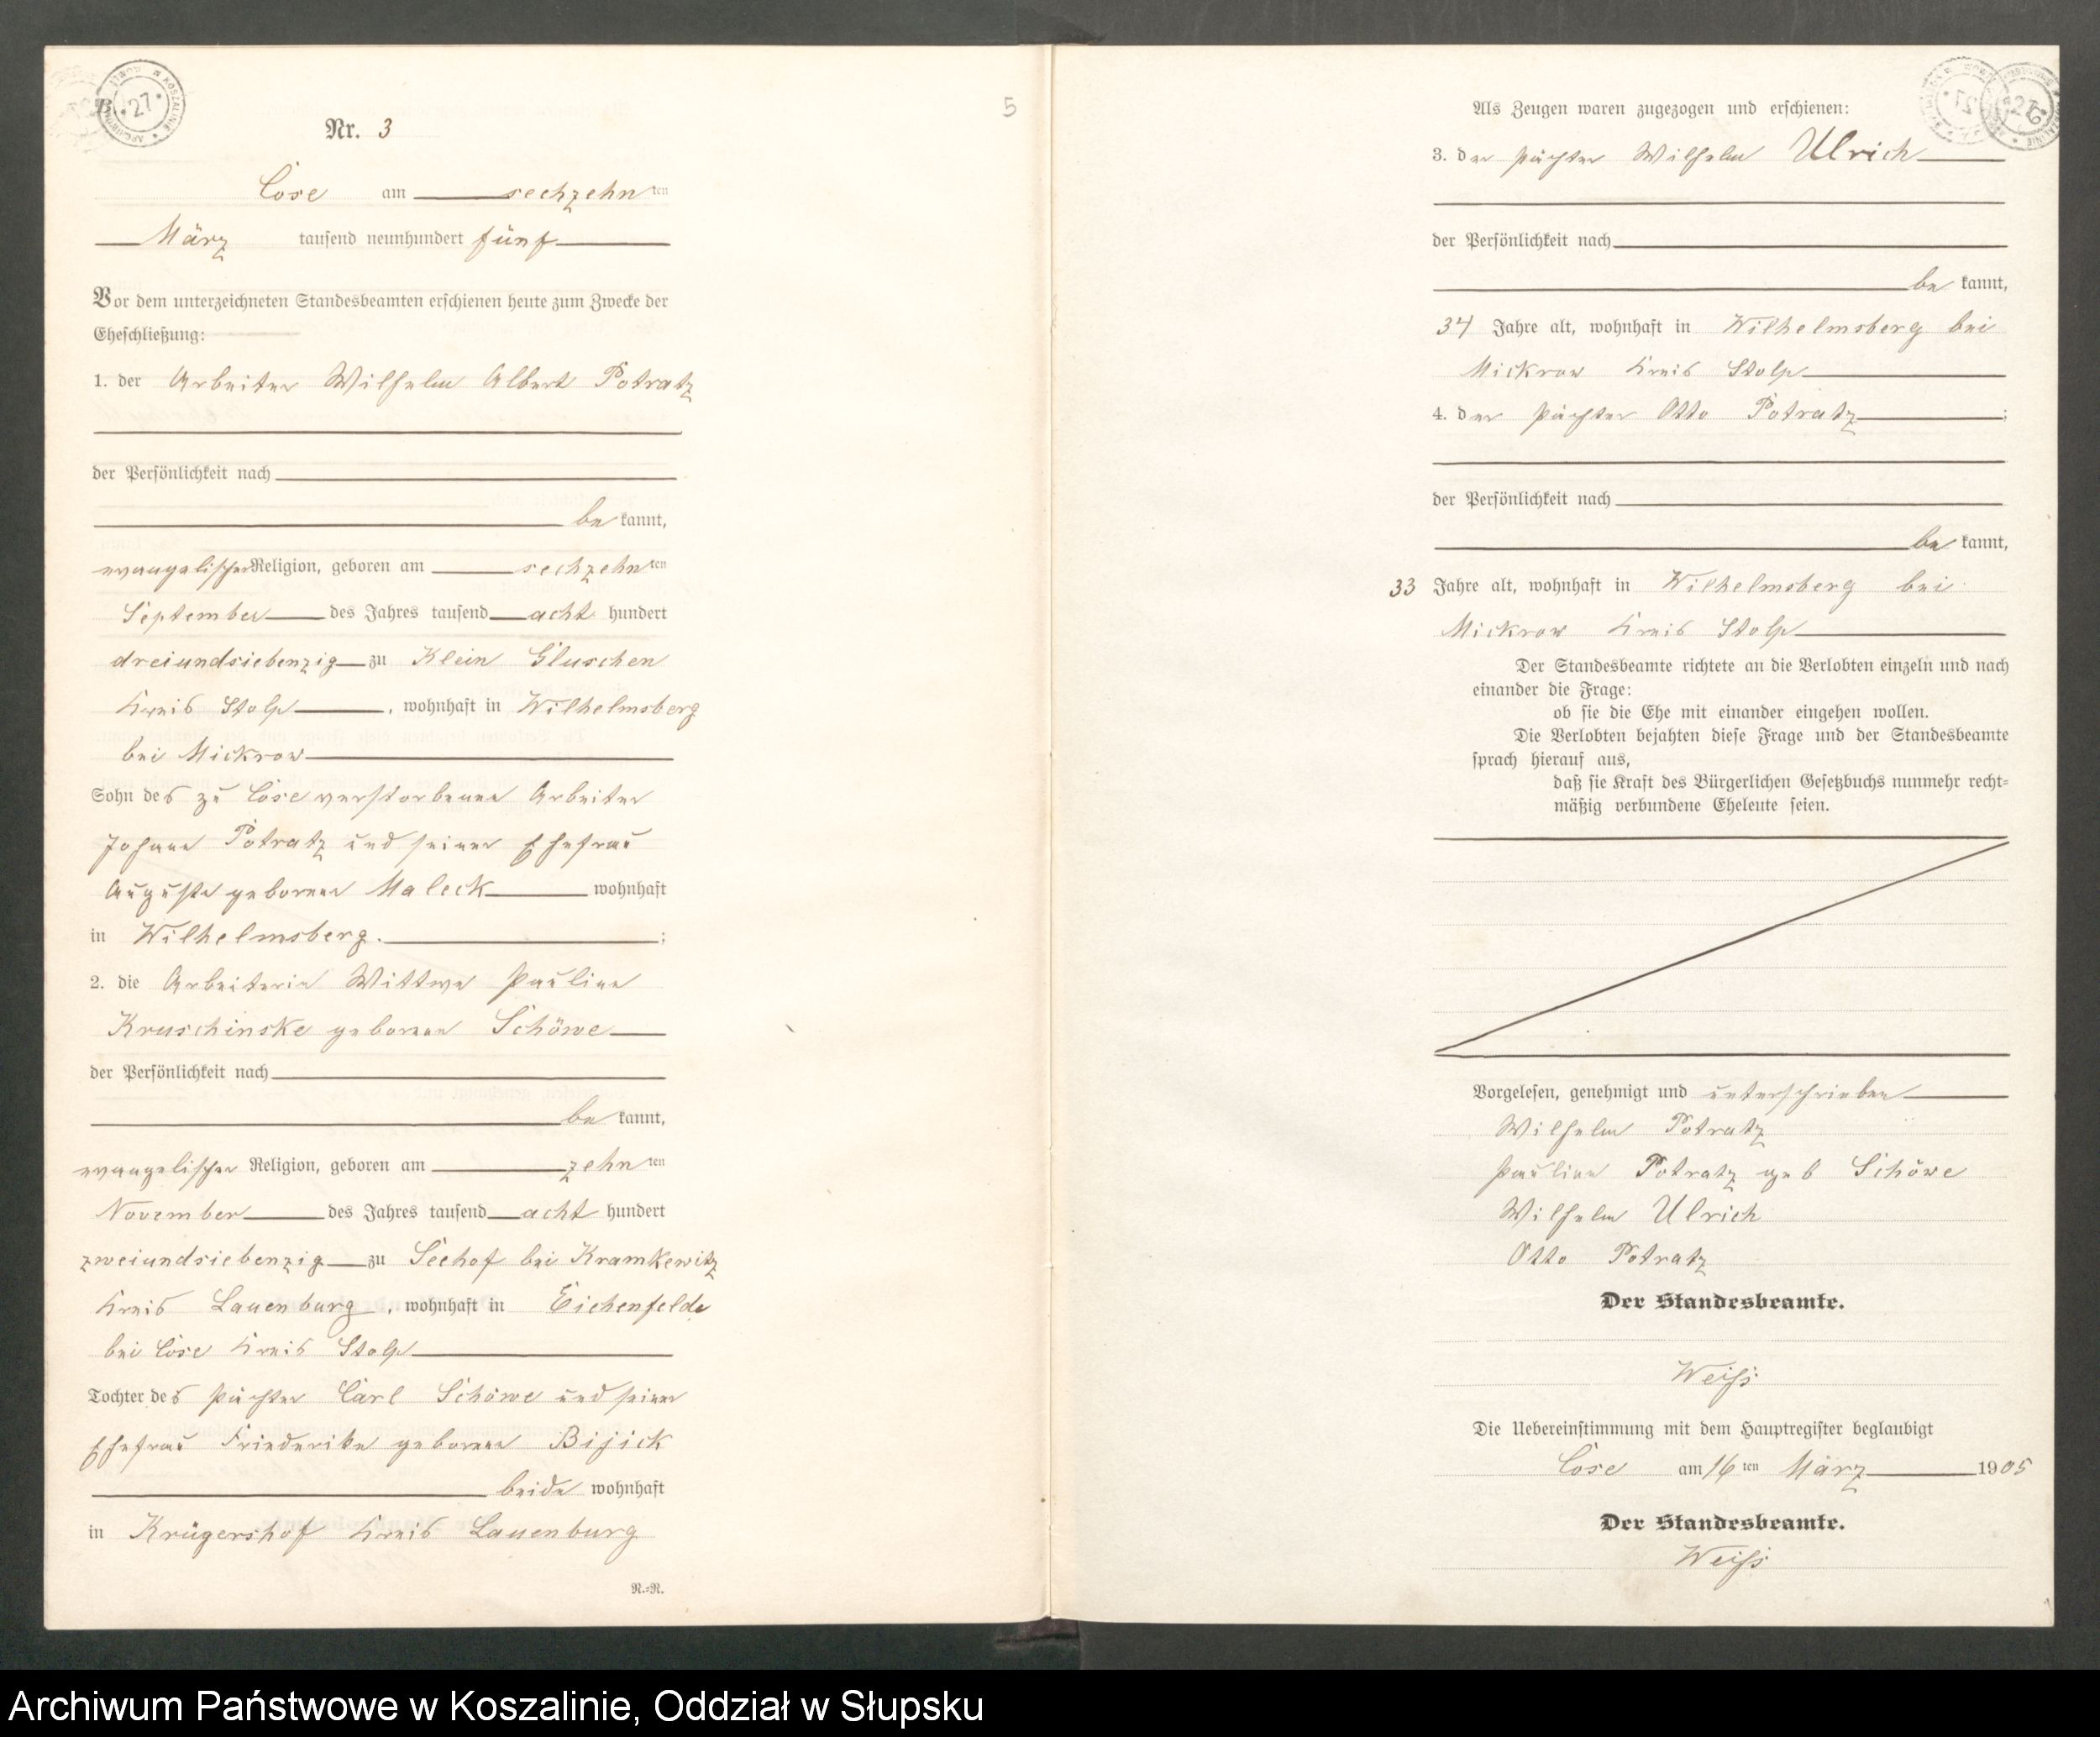 B.
27
Nr. 3
Cose am sechzehn ten
März tausend neunhundert fünf
Vor dem unterzeichneten Standesbeamten erschienen heute zum Zwecke der
Eheschließung:
1. der Arbeiter Wilhelm Albert Potratz
der Persönlichkeit nach
be kannt,
evangelischer Religion, geboren am sechzehn ten
September des Jahres tausend acht hundert
dreiundsiebenzig zu Klein Gluschen
Kreis Stolp, wohnhaft in Wilhelmsberg
bei Mickrow
Sohn des zu Cose verstorbenen Arbeiter
Johann Potratz und seiner Ehefrau
Auguste geborene Maleck wohnhaft
in Wilhelmsberg. ;
2. die Arbeiterin Wittwe Pauline
Kruschinske geborene Schöwe
der Persönlichkeit nach
be kannt,
evangelischer Religion, geboren am zehn ten
November des Jahres tausend acht hundert
zweiundsiebenzig zu Seehof bei Kramkewitz
Kreis Lauenburg, wohnhaft in Eichenfelde
bei Cose Kreis Stolp
Tochter des Pächter Carl Schöwe und seiner
Ehefrau Friederike geborene Bijick
beide wohnhaft
in Krügershof Kreis Lauenburg
N.=R.
5
Als Zeugen waren zugezogen und erschienen:
3. der Pächter Wilhelm Ulrich
der Persönlichkeit nach
be kannt,
34 Jahre alt, wohnhaft in Wilhelmsberg bei
Mickrow Kreis Stolp
4. der Pächter Otto Potratz ;
der Persönlichkeit nach
be kannt,
33 Jahre alt, wohnhaft in Wilhelmsberg bei
Mickrow Kreis Stolp
Der Standesbeamte richtete an die Verlobten einzeln und nach
einander die Frage:
ob sie die Ehe mit einander eingehen wollen.
Die Verlobten bejahten diese Frage und der Standesbeamte
sprach hierauf aus,
daß sie Kraft des Bürgerlichen Gesetzbuchs nunmehr recht=
mäßig verbundene Eheleute seien.
Vorgelesen, genehmigt und unterschrieben
Wilhelm Potratz
Pauline Potratz geb Schöwe
Wilhelm Ulrich
Otto Potratz
Der Standesbeamte.
Weiß
Die Uebereinstimmung mit dem Hauptregister beglaubigt
Cose am 16 ten März 1905
Der Standesbeamte.
Weiß
Archiwum Państwowe w Koszalinie, Oddział w Słupsku